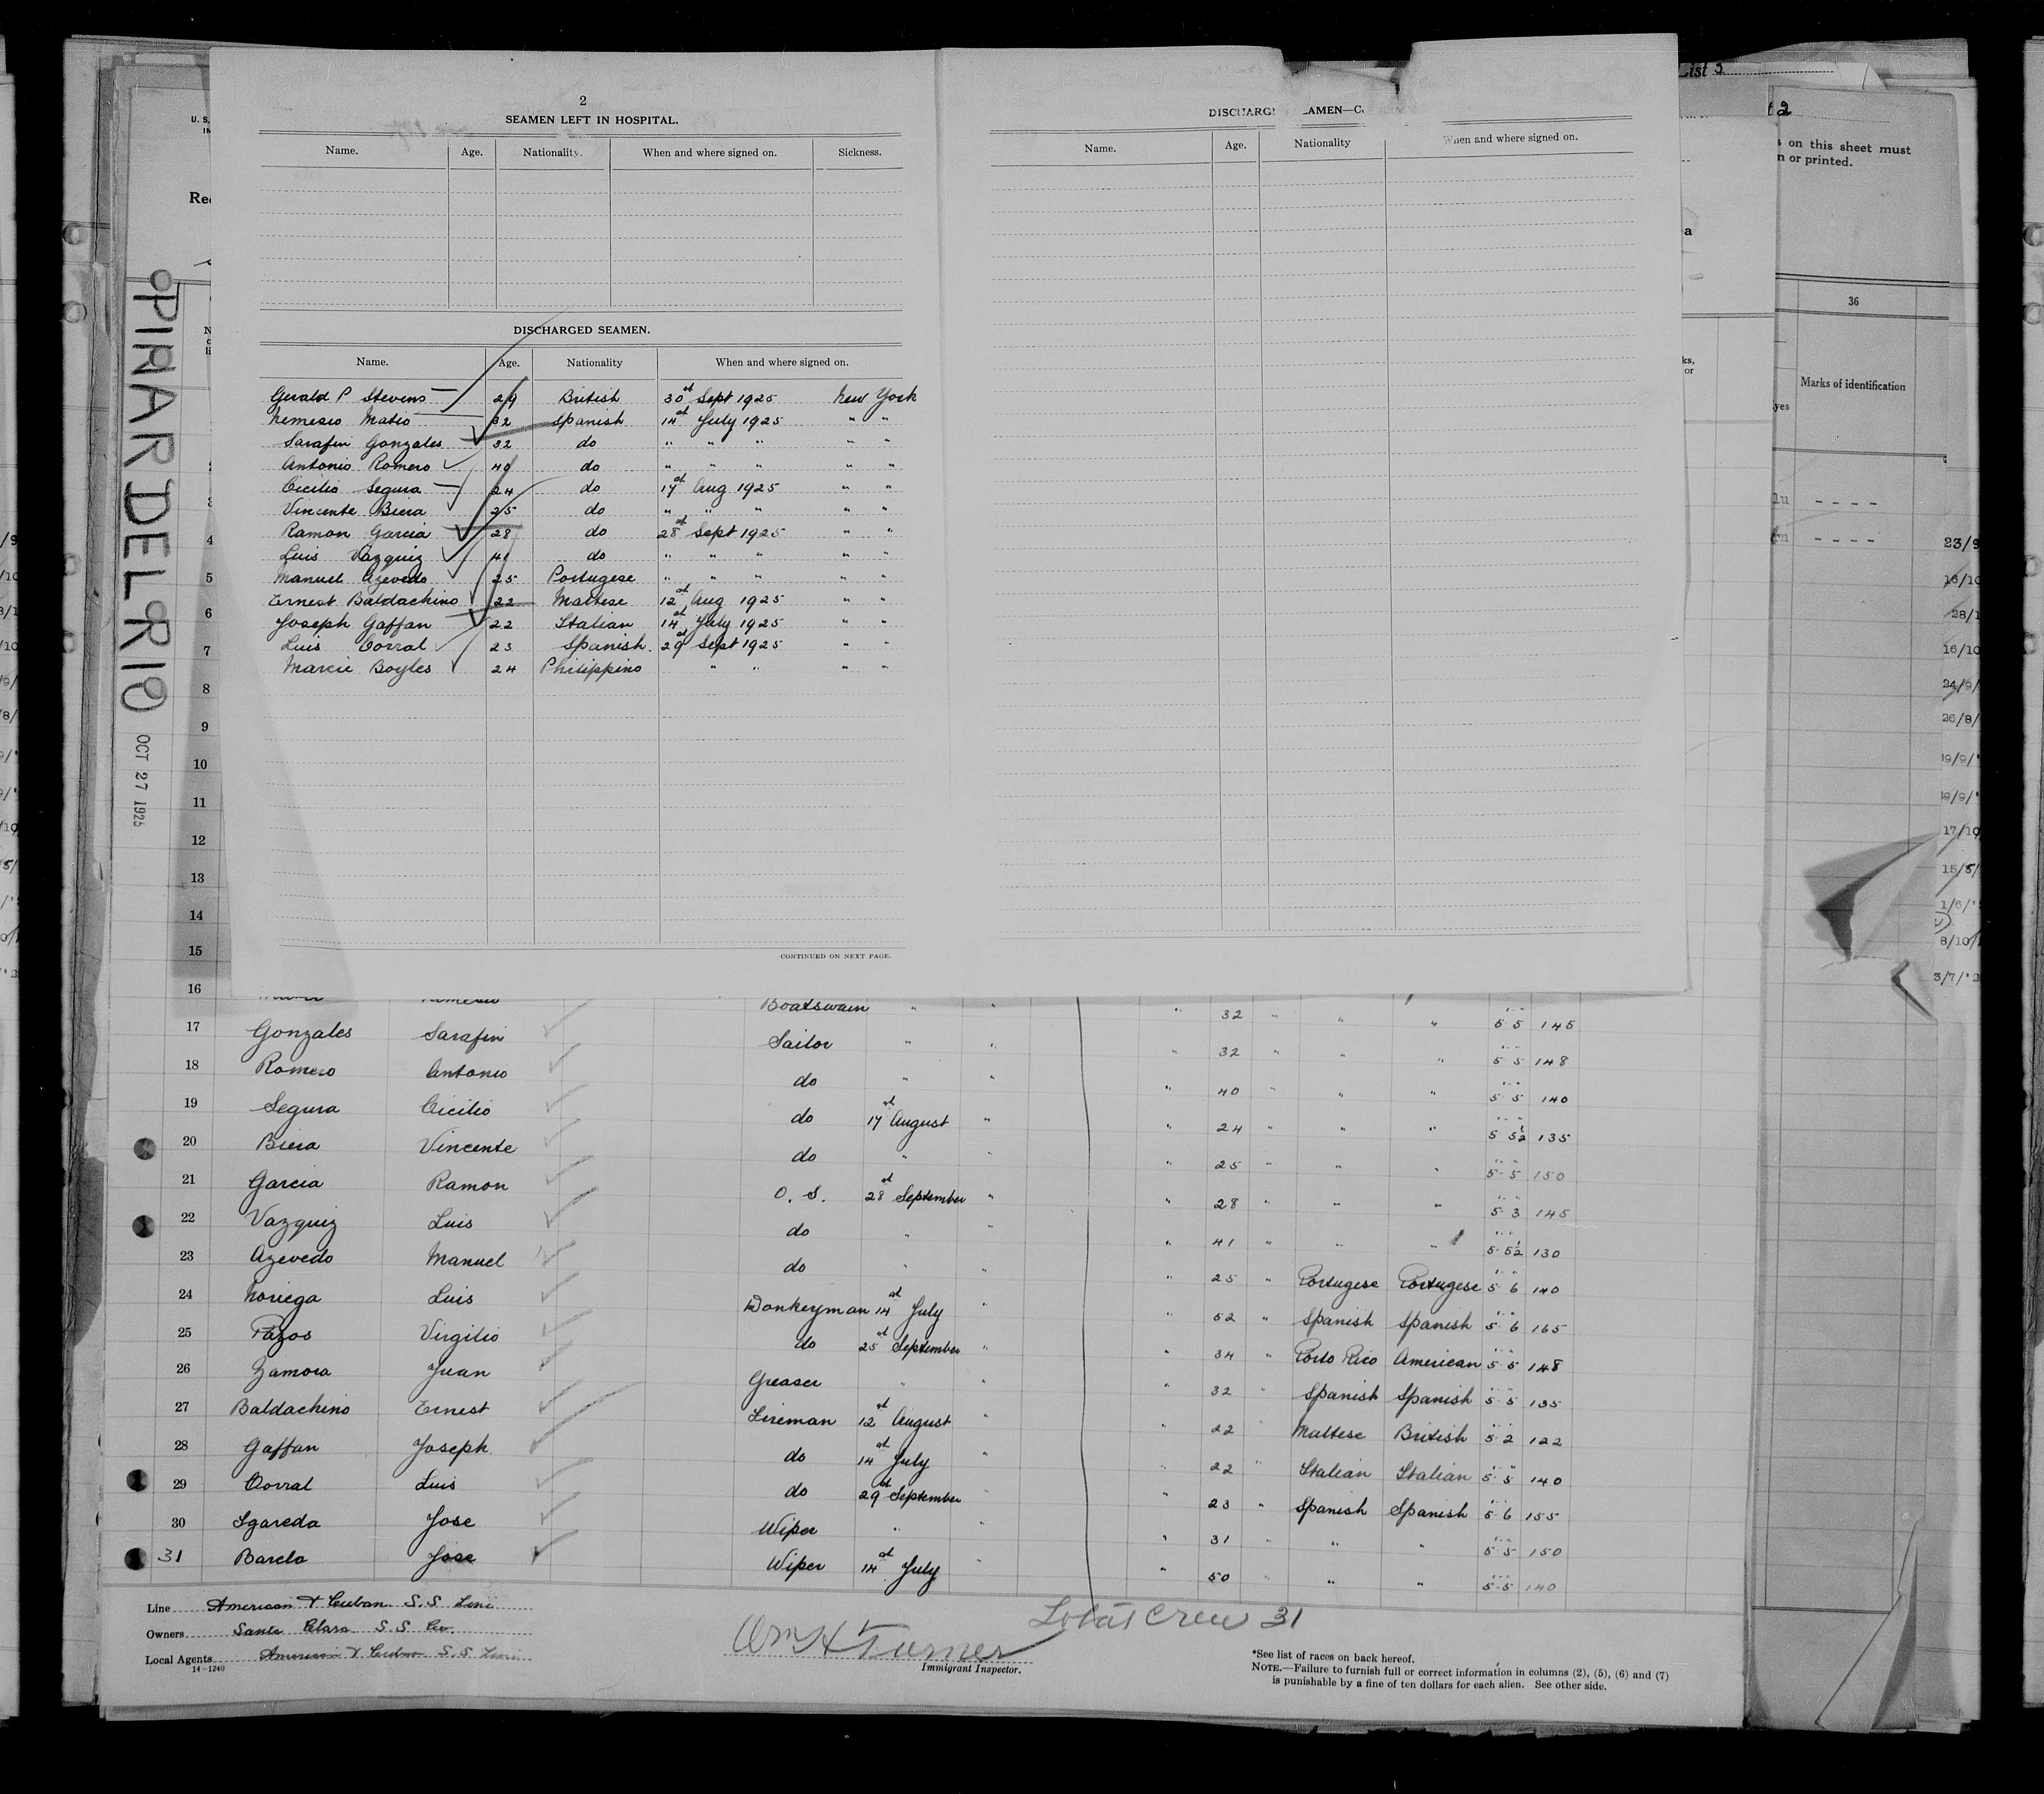 PINAR DEL RIO OCT 27 1925
2
SEAMEN LEFT IN HOSPITAL.
Name. Age. Nationality. When and where signed on. Sickness.
DISCHARGED SEAMEN.
Name. Age. Nationality When and where signed on.
Gerald P Stevens 29 British 30st Sept 1925 New York
Nemesio Matio 32 Spanish 14st July 1925 " "
Sarafin Gonzales 32 do " " " " "
Antonio Romero 40 do " " " " "
Cicilio Segura 24 do 17st Aug 1925 " "
Vincente Biera 25 do " " " " "
Ramon Garcia 28 do 28st Sept 1925 " "
Luis Vazquiz 41 do " " " " "
Manuel Azevedo 25 Portugese " " " " "
Ernest Baldachino 22 Maltese 12st Aug 1925 " "
Joseph Gaffan 22 Italian 14st July 1925 " "
Luis Corral 23 Spanish 29st Sept 1925 " "
Marcie Boyles 24 Philippino " " " "
CONTINUED ON NEXT PAGE.
Name. Age. Nationality When and where signed on.
List 3
2
on this sheet must
n or printed.
36
Marks of identification
U. S.
4
5
6
7
8
9
10
11
12
13
14
15
16 Boatswain " " " 32 " " " 5 5 145
17 Gonzales Sarafin Sailor " " " 32 " " " 5 5 148
18 Romero Antonio do " " " 40 " " " 5 5 140
19 Segura Cicilio do 17st August " " 24 " " " 5 5½ 135
20 Biera Vincente do " " " 25 " " " 5 5 150
21 Garcia Ramon O. S. 28st September " " 28 " " " 5 3 145
22 Vazquiz Luis do " " " 41 " " " 5 5½ 130
23 Azevedo Manuel do " " " 25 " Portugese Portugese 5 6 140
24 Noriega Luis Donkeyman 14st July " " 52 " Spanish Spanish 5 6 165
25 Pazos Virgilio do 25st September " " 34 " Porto Rico American 5 5 148
26 Zamora Juan Greaser " " " 32 " Spanish Spanish 5 5 135
27 Baldachino Ernest Fireman 12st August " " 22 " Maltese British 5 2 122
28 Gaffan Joseph do 14st July " " 22 " Italian Italian 5 5 140
29 Corral Luis do 29st September " " 23 " Spanish Spanish 5 6 155
30 Igareda Jose Wiper " " " 31 " " " 5 5 150
31 Barela Jose Wiper 14st July " " 50 " " " 5 5 140
Line American & Cuban S. S Line
Owners Santa Clara S. S Co.
Local Agents American & Cuban S. S Line
14-1240
Wm H Turner
Immigrant Inspector.
Total Crew 31
*See list of races on back hereof.
NOTE.—Failure to furnish full or correct information in columns (2), (5), (6) and (7)
is punishable by a fine of ten dollars for each alien. See other side.